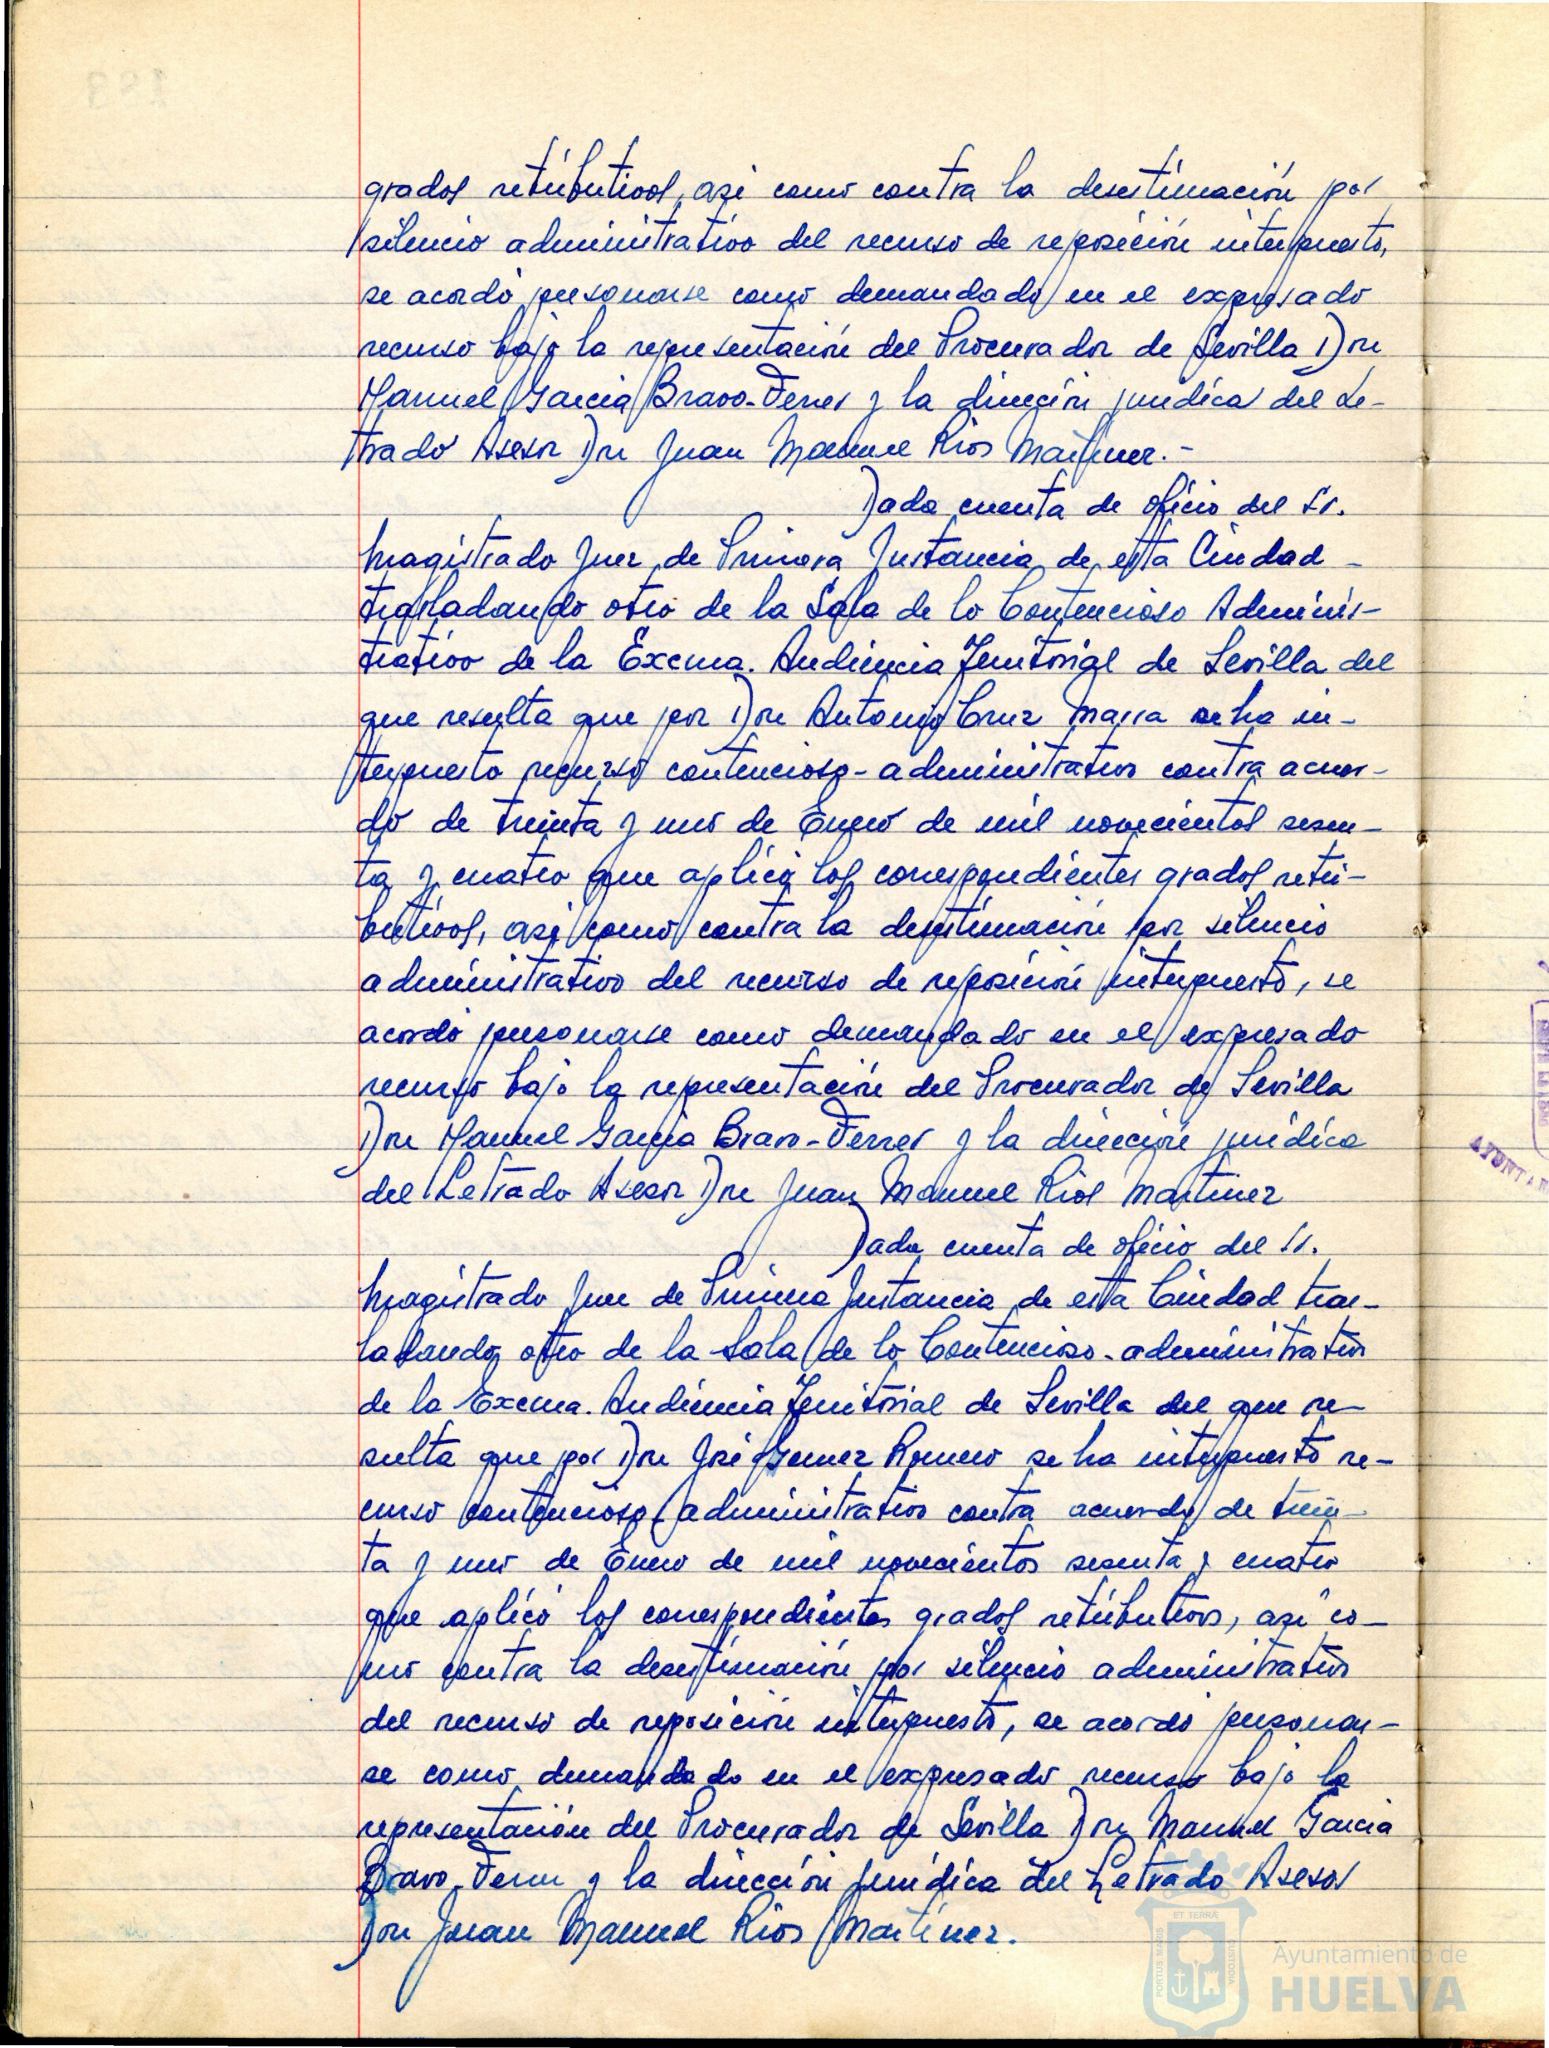 grados retributivos, asi como contra la desestimación por
silencio administrativo del recurso de reposición interpuesto,
se acordó personarse como demandado en el expresado
recurso bajo la representación del Procurador de Sevilla Don
Manuel Garcia Bravo-Ferrer y la dirección juridica del Le-
trado Asesor Don Juan Manuel Rios Martinez.-
Dada cuenta de oficio del Sr.
Magistrado Juez de Primera Instancia de esta Ciudad -
trasladando otro de la Sala de lo Contencioso Adminis-
trativo de la Excma. Audiencia Territorial de Sevilla del
que resulta que por Don Antonio Cruz Marra se ha in-
terpuesto recurso contencioso-administrativo contra acuer-
do de treinta y uno de Enero de mil novecientos sesen-
ta y cuatro que aplicó los correspondientes grados retri-
butivos, asi como contra la desestimación por silencio
administrativo del recurso de reposición interpuesto, se
acordó personarse como demandado en el expresado
recurso bajo la representación del Procurador de Sevilla
Don Manuel Garcia Bravo-Ferrer y la dirección juridica
del Letrado Asesor Don Juan Manuel Rios Martinez
Dada cuenta de oficio del Sr.
Magistrado Juez de Primera Instancia de esta Ciudad tras-
ladando otro de la Sala de lo Contencioso-administrativo
de la Excma. Audiencia Territorial de Sevilla del que re-
sulta que por Don José Gomez Romero se ha interpuesto re-
curso contencioso-administrativo contra acuerdo de trein-
ta y uno de Enero de mil novecientos sesenta y cuatro
que aplicó los correspondientes grados retributivos, asi co-
mo contra la desestimación por silencio administrativo
del recurso de reposición interpuesto, se acordó personar-
se como demandado en el expresado recurso bajo la
representación del Procurador de Sevilla Don Manuel Garcia
Bravo-Ferrer y la dirección juridica del Letrado Asesor
Don Juan Manuel Rios Martinez.
ET TERRÆ
PORTUS MARIS
CUSTODIA
Ayuntamiento de
HUELVA